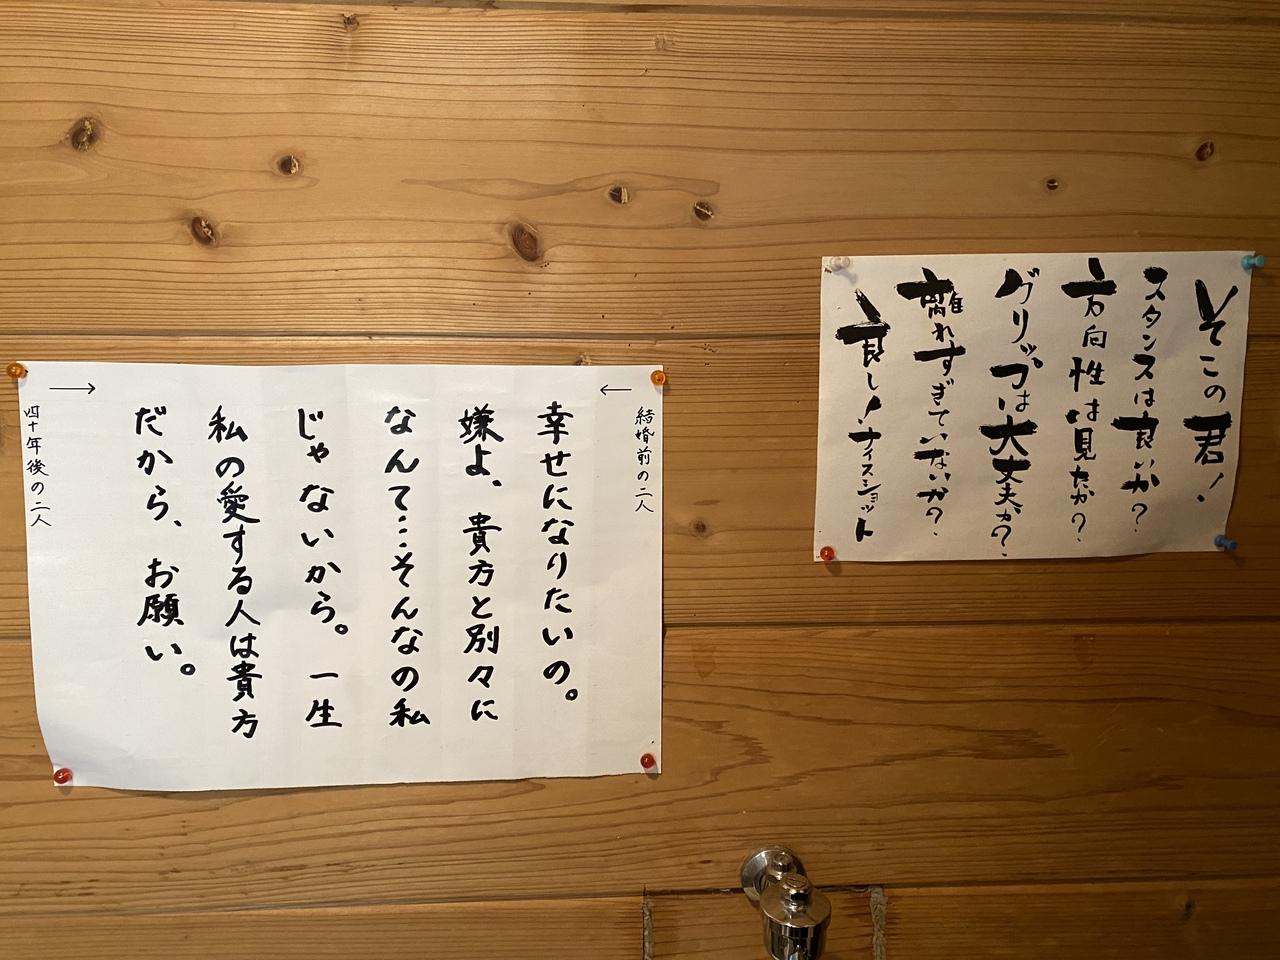 そこの君!
スタンスは良いか?
方向性は見たか?
グリップは大丈夫か?
離れすぎていないか?
良し!ナイスショット
結婚前の二人
←
幸せになりたいの。
嫌よ、貴方と別々に
なんて…そんなの私
じゃないから。一生
私の愛する人は貴方
だから、お願い。
→
四十年後の二人